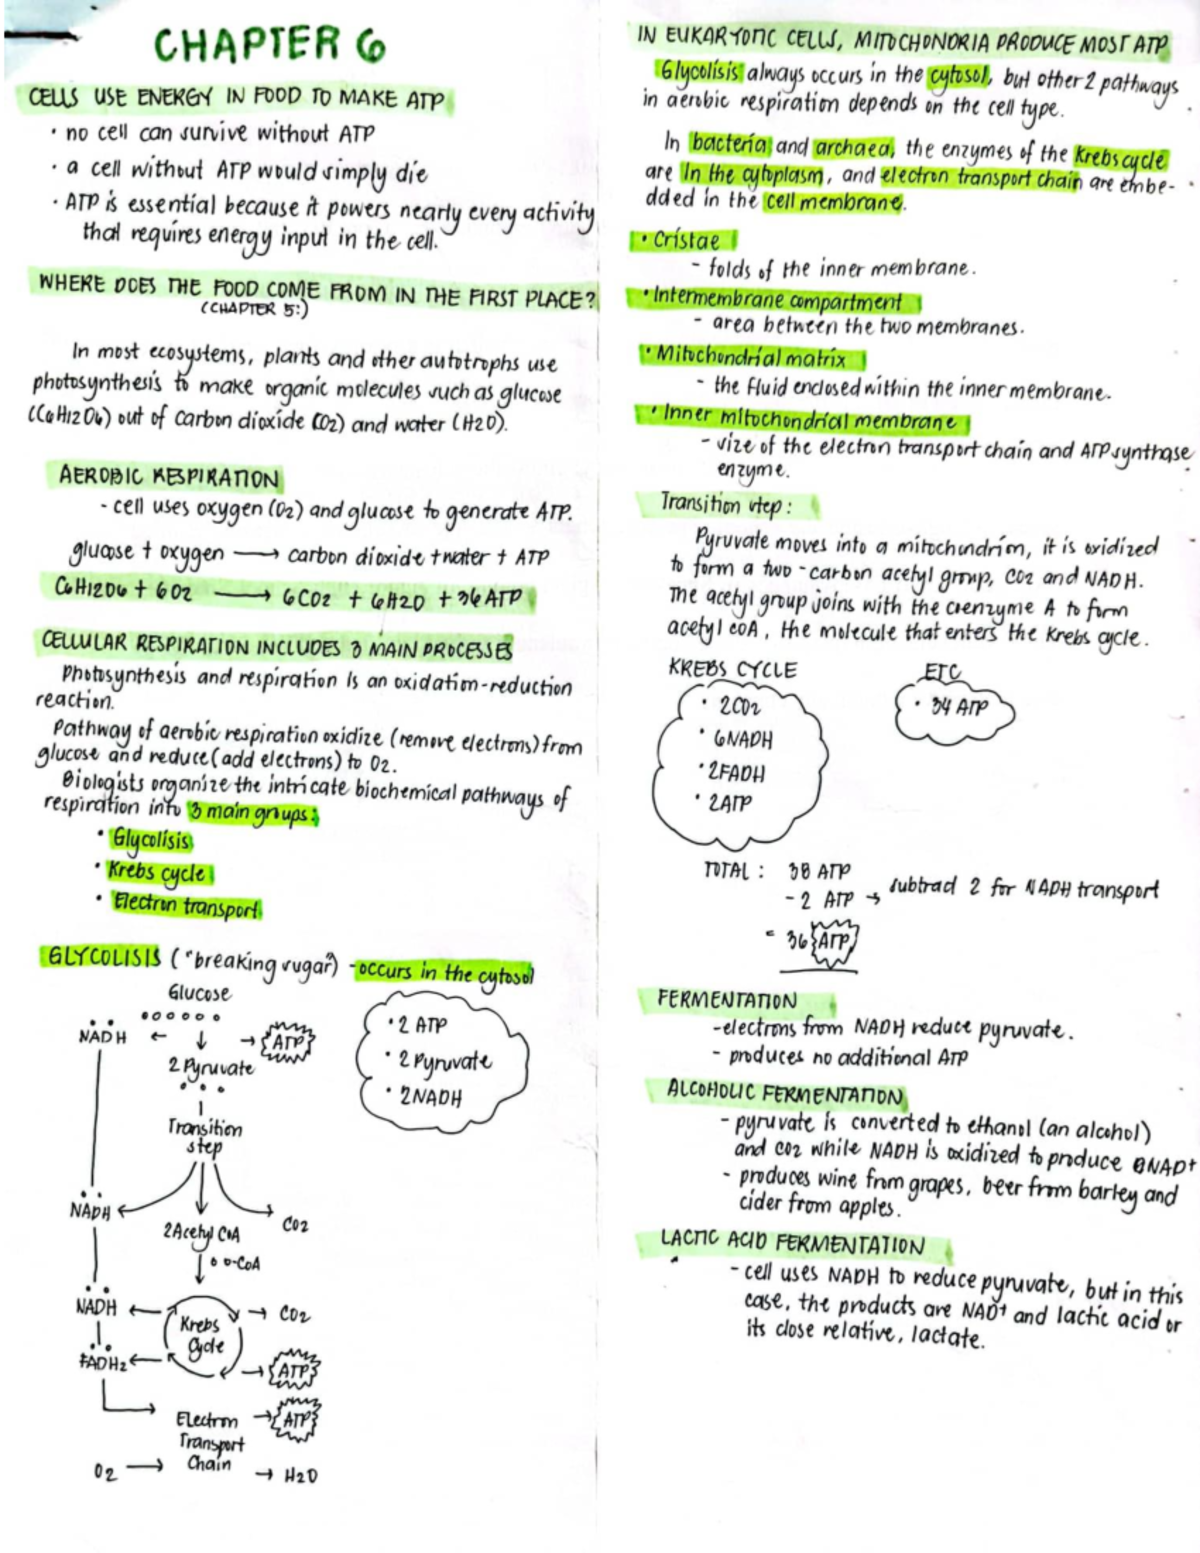 CHAPTER 6
CELLS USE ENERGY IN FOOD TO MAKE ATP
· no cell can survive without ATP
· a cell without ATP would simply die
· ATP is essential because it powers nearly every activity
that requires energy input in the cell.
WHERE DOES THE FOOD COME FROM IN THE FIRST PLACE?
(CHAPTER 5:)
In most ecosystems, plants and other autotrophs use
photosynthesis to make organic molecules such as glucose
(C6H12O6) out of carbon dioxide (O2) and water (H2O).
AEROBIC RESPIRATION
- cell uses oxygen (O2) and glucose to generate ATP.
glucose + oxygen → carbon dioxide + water + ATP
C6H12O6 + 6O2 → 6CO2 + 6H2O + 36 ATP
CELLULAR RESPIRATION INCLUDES 3 MAIN PROCESSES
Photosynthesis and respiration is an oxidation-reduction
reaction.
Pathway of aerobic respiration oxidize (remove electrons) from
glucose and reduce (add electrons) to O2.
Biologists organize the intricate biochemical pathways of
respiration into 3 main groups:
· Glycolisis
· Krebs cycle
· Electron transport
GLYCOLISIS ("breaking sugar") - occurs in the cytosol
Glucose
NADH ← ↓ → ATP
2 Pyruvate
· 2 ATP
· 2 Pyruvate
· 2NADH
Transition
step
NADH
2Acetyl CoA
CO2
-CoA
NADH ← Krebs → CO2
Cycle
FADH2 ← → ATP
Electron → ATP
Transport
O2 → Chain → H2O
IN EUKARYOTIC CELLS, MITOCHONDRIA PRODUCE MOST ATP
Glycolisis always occurs in the cytosol, but other 2 pathways
in aerobic respiration depends on the cell type.
In bacteria and archaea, the enzymes of the Krebs cycle
are in the cytoplasm, and electron transport chain are embe-
dded in the cell membrane.
· Cristae
- folds of the inner membrane.
· Intermembrane compartment
- area between the two membranes.
· Mitochondrial matrix
- the fluid enclosed within the inner membrane.
· Inner mitochondrial membrane
- size of the electron transport chain and ATP synthase
enzyme.
Transition step:
Pyruvate moves into a mitochondrion, it is oxidized
to form a two-carbon acetyl group, CO2 and NADH.
The acetyl group joins with the coenzyme A to form
acetyl coA, the molecule that enters the Krebs cycle.
KREBS CYCLE
· 2CO2
· 6NADH
· 2FADH
· 2ATP
ETC
· 34 ATP
TOTAL: 38 ATP
- 2 ATP → subtract 2 for NADH transport
= 36 ATP
FERMENTATION
- electrons from NADH reduce pyruvate.
- produces no additional ATP
ALCOHOLIC FERMENTATION
- pyruvate is converted to ethanol (an alcohol)
and CO2 while NADH is oxidized to produce NAD+
- produces wine from grapes, beer from barley and
cider from apples.
LACTIC ACID FERMENTATION
- cell uses NADH to reduce pyruvate, but in this
case, the products are NAD+ and lactic acid or
its close relative, lactate.